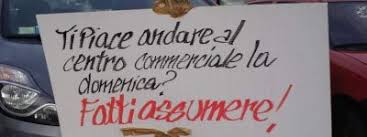 Ti Piace andare al
centro commerciale la
domenica?
Fatti assumere!